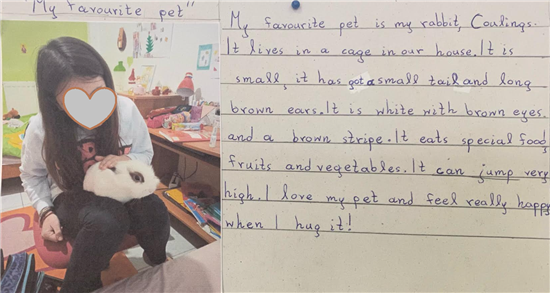 "My favourite pet"
My favourite pet is my rabbit, Coalings.
It lives in a cage in our house. It is
small, it has got a small tail and long
brown ears. It is white with brown eyes
and a brown stripe. It eats special food,
fruits and vegetables. It can jump very
high. I love my pet and feel really happy
when I hug it!